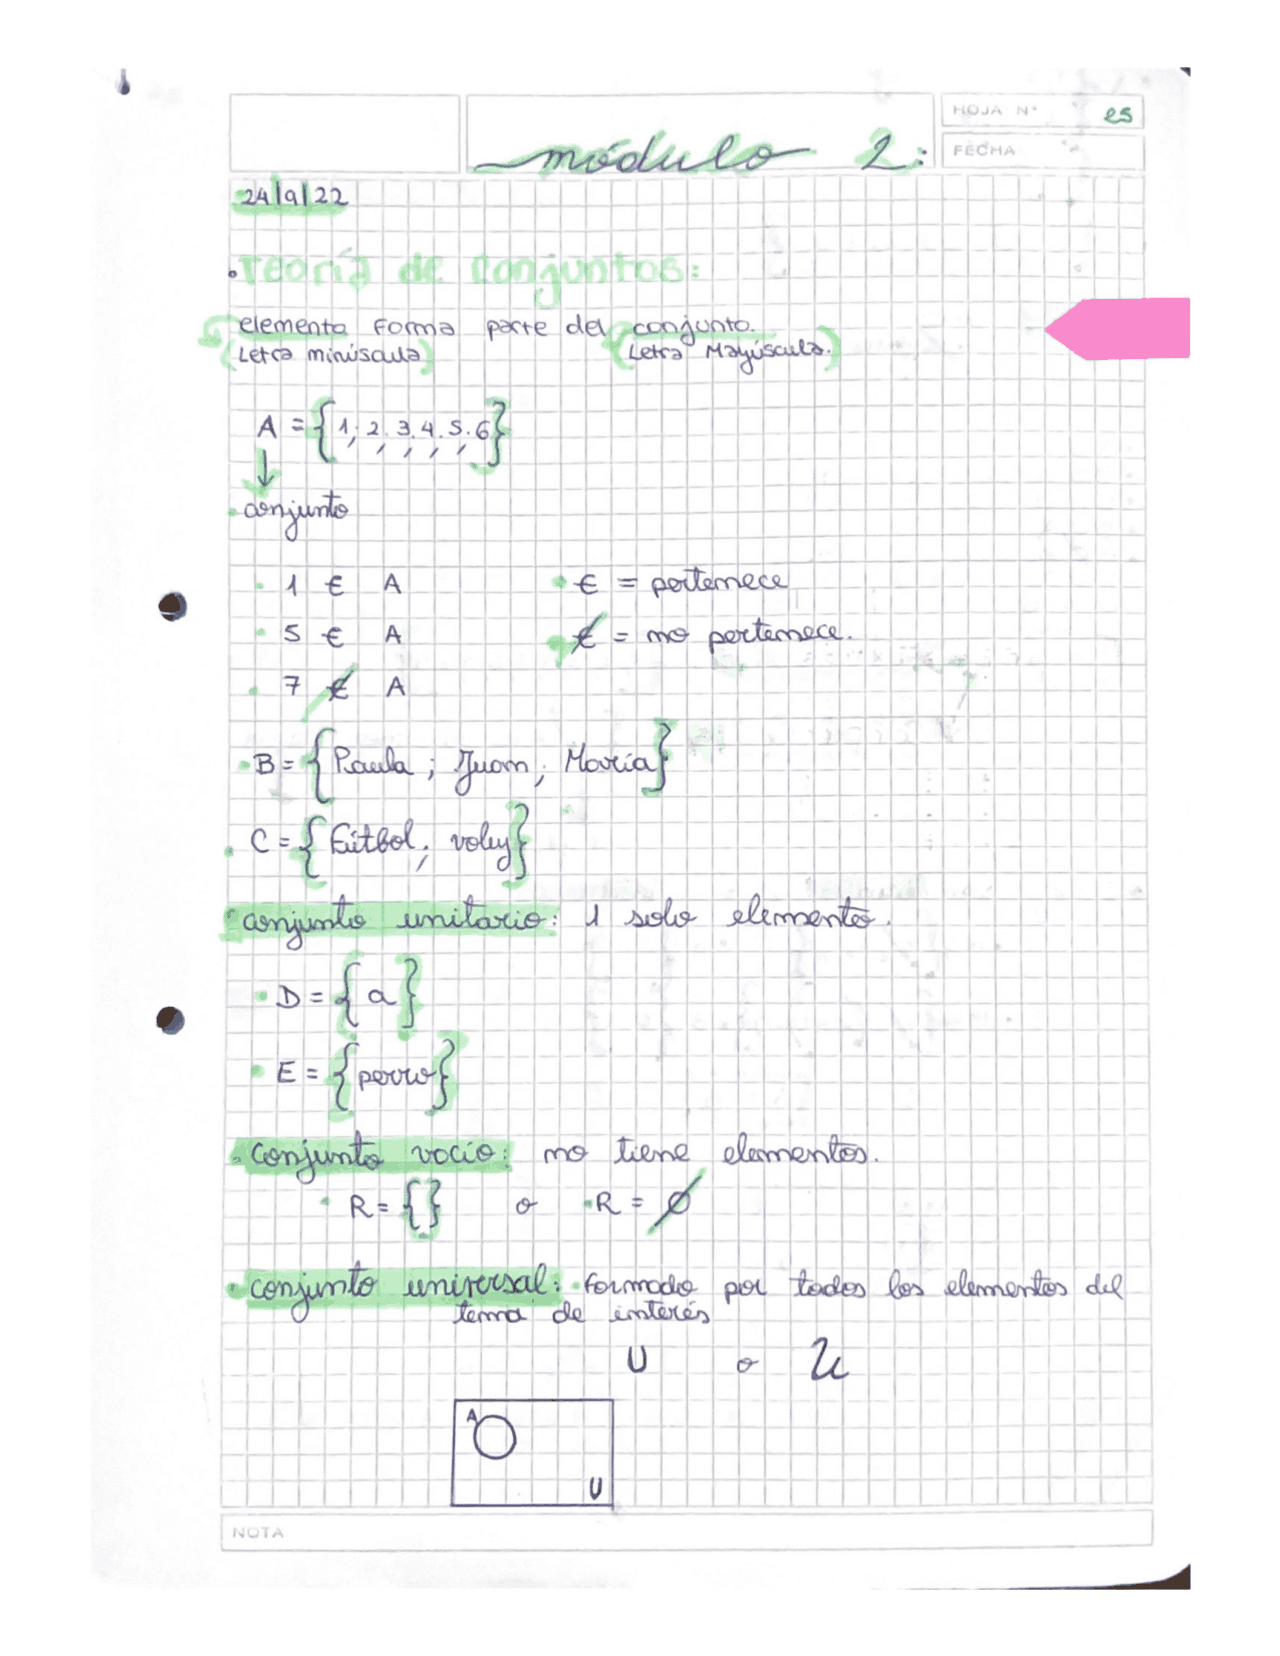 HOJA N° 25
módulo 2:
FECHA
24/9/22
• Teoría de conjuntos:
elemento forma parte del conjunto.
(Letra minúscula) (Letra Mayúscula.)
A = {1; 2; 3; 4; 5; 6}
↓
• conjunto
• 1 € A • € = pertenece
• 5 € A • ∉ = no pertenece.
• 7 ∉ A
• B = {Paula ; Juan ; María}
• C = {Fútbol ; voley}
• conjunto unitario: 1 solo elemento.
• D = { a }
• E = {perro}
• conjunto vacío: no tiene elementos.
• R = { } o • R = ∅
• conjunto universal: • formado por todos los elementos del
tema de interés
U o U
A
U
NOTA